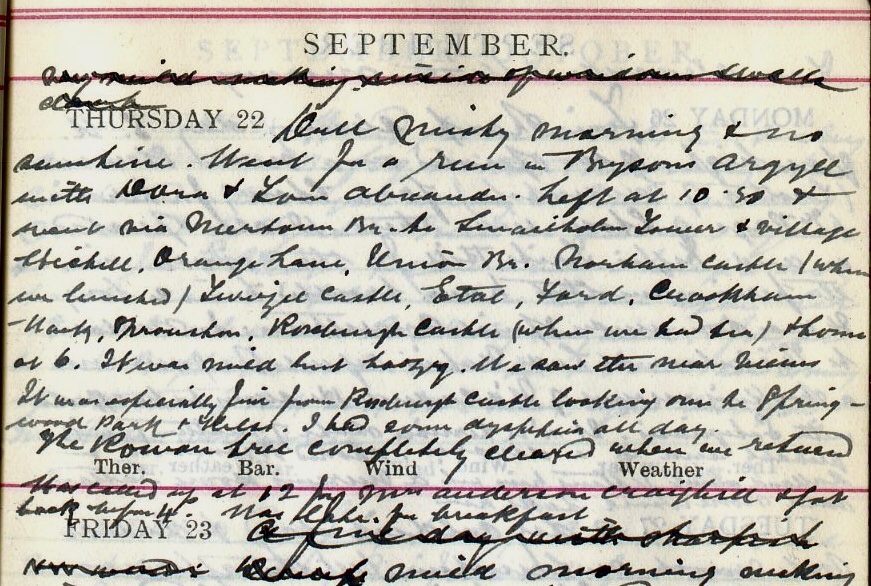 SEPTEMBER.
THURSDAY 22 Dull misty morning & no
sunshine. Went for a run in Brysons Argyll
with Dora & Alexander. Left at 10.30 &
went via Mertoun Br. to Smailholm Tower & village
Orange Lane, Union Br. Norham Castle (where
we lunched) Twizel Castle, Etal, Ford, Crookham
Roxburgh Castle (where we had tea) & home
at 6. It was mild but hazy. We saw the near views
It was especially fine from Roxburgh Castle looking over to Spring-
wood Park & Kelso. I had some dyspepsia all day.
The Rowan tree completely cleared when we returned
Ther. Bar. Wind Weather
Was called up at 12 for Mrs Anderson Craighill & got
back before 4. Was late for breakfast
FRIDAY 23 A fine day with sharpish
mild morning